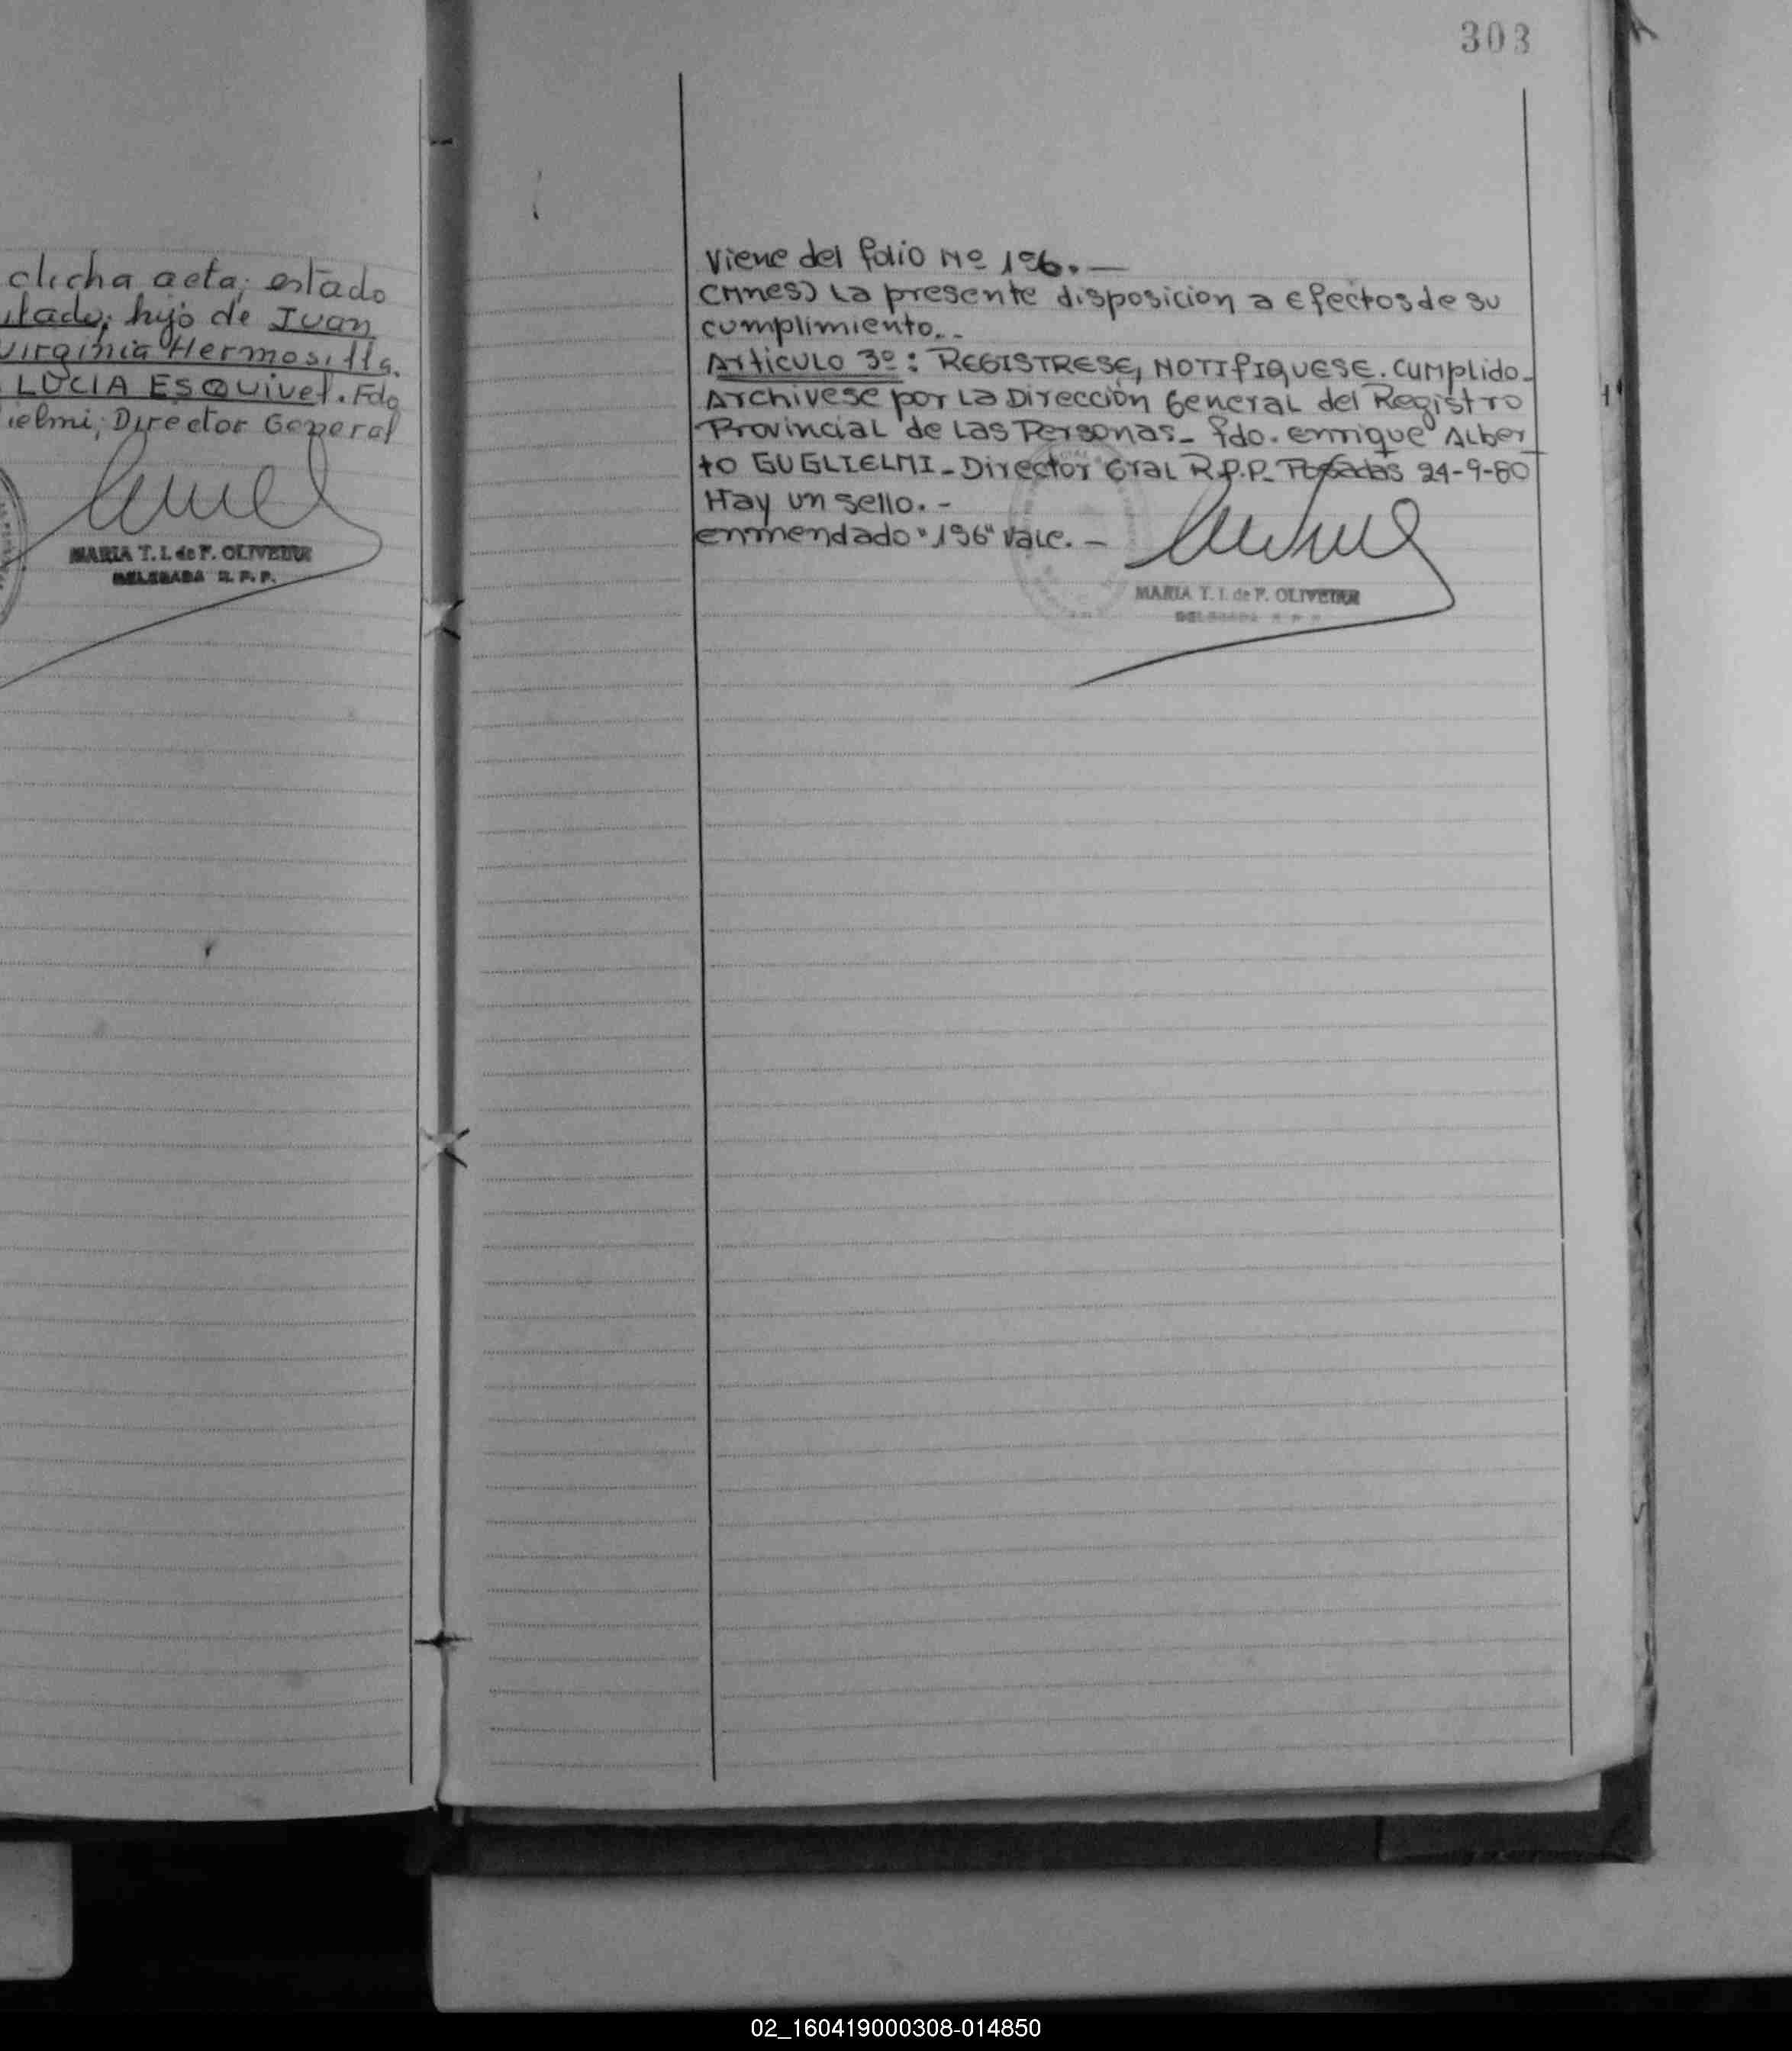 303
dicha acta; estado
hijo de Juan
Virginia Hermosilla.
LUCIA ESQUIVEL. Fdo
ielmi; Director General
MARIA T. I. de F. OLIVEIRA
DELEGADA R. P. P.
Viene del folio Nº 196. —
(Mnes) La presente disposicion a efectos de su
cumplimiento. -
Articulo 3º: REGISTRESE, NOTIFIQUESE. Cumplido-
Archivese por La Dirección General del Registro
Provincial de Las Personas- fdo. enrrique Alber
to GUGLIELMI - Director Gral R.P.P. Posadas 24-9-80
Hay un sello. -
enmendado "196" Vale. -
MARIA T. I. de F. OLIVEIRA
DELEGADA R P P
02_160419000308-014850